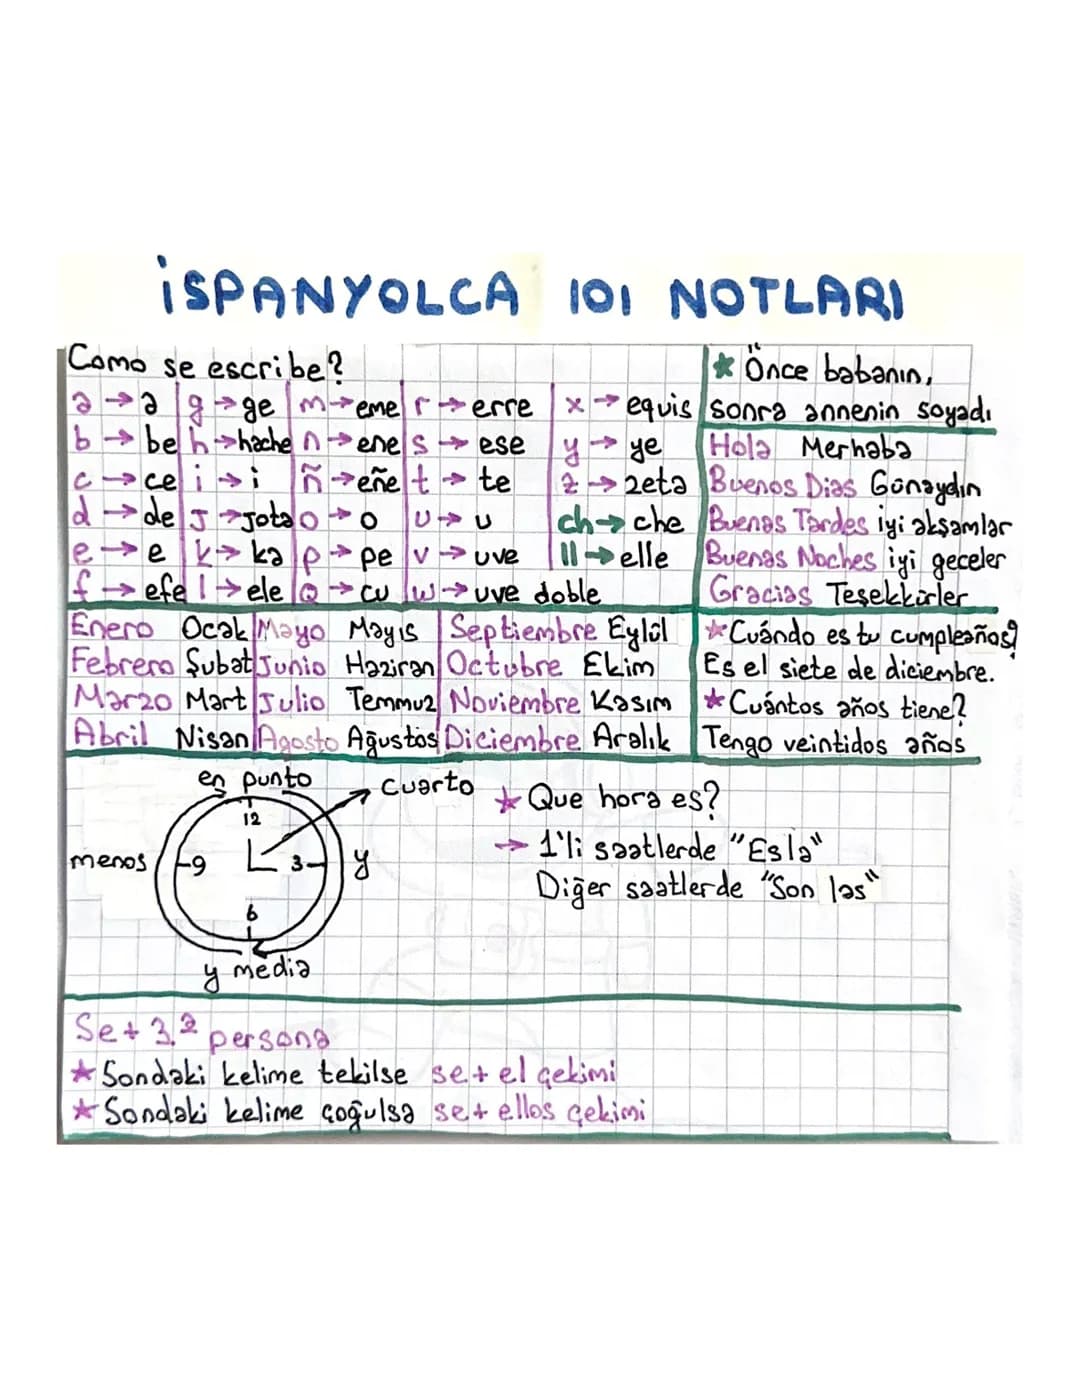 İSPANYOLCA 101 NOTLARI
Como se escribe?
a → a g → ge m → eme r → erre x → equis
b → be h → hache n → ene s → ese y → ye
c → ce i → i ñ → eñe t → te z → zeta
d → de J → jota o → o u → u ch → che
e → e k → ka p → pe v → uve ll → elle
f → efe l → ele Q → cu w → uve doble
★ Önce babanın,
sonra annenin soyadı
Hola Merhaba
Buenos Dias Günaydın
Buenas Tardes iyi akşamlar
Buenas Noches iyi geceler
Gracias Teşekkürler
Enero Ocak Mayo Mayıs Septiembre Eylül
Febrero Şubat Junio Haziran Octubre Ekim
Marzo Mart Julio Temmuz Noviembre Kasım
Abril Nisan Agosto Ağustos Diciembre Aralık
★ Cuándo es tu cumpleaños?
Es el siete de diciembre.
★ Cuántos años tiene?
Tengo veintidos años
en punto
cuarto
12
menos 9 3 y
6
y media
★ Que hora es?
→ 1'li saatlerde "Es la"
Diğer saatlerde "Son las"
Se + 3.ª persona
★ Sondaki kelime tekilse se + el çekimi
★ Sondaki kelime çoğulsa se + ellos çekimi